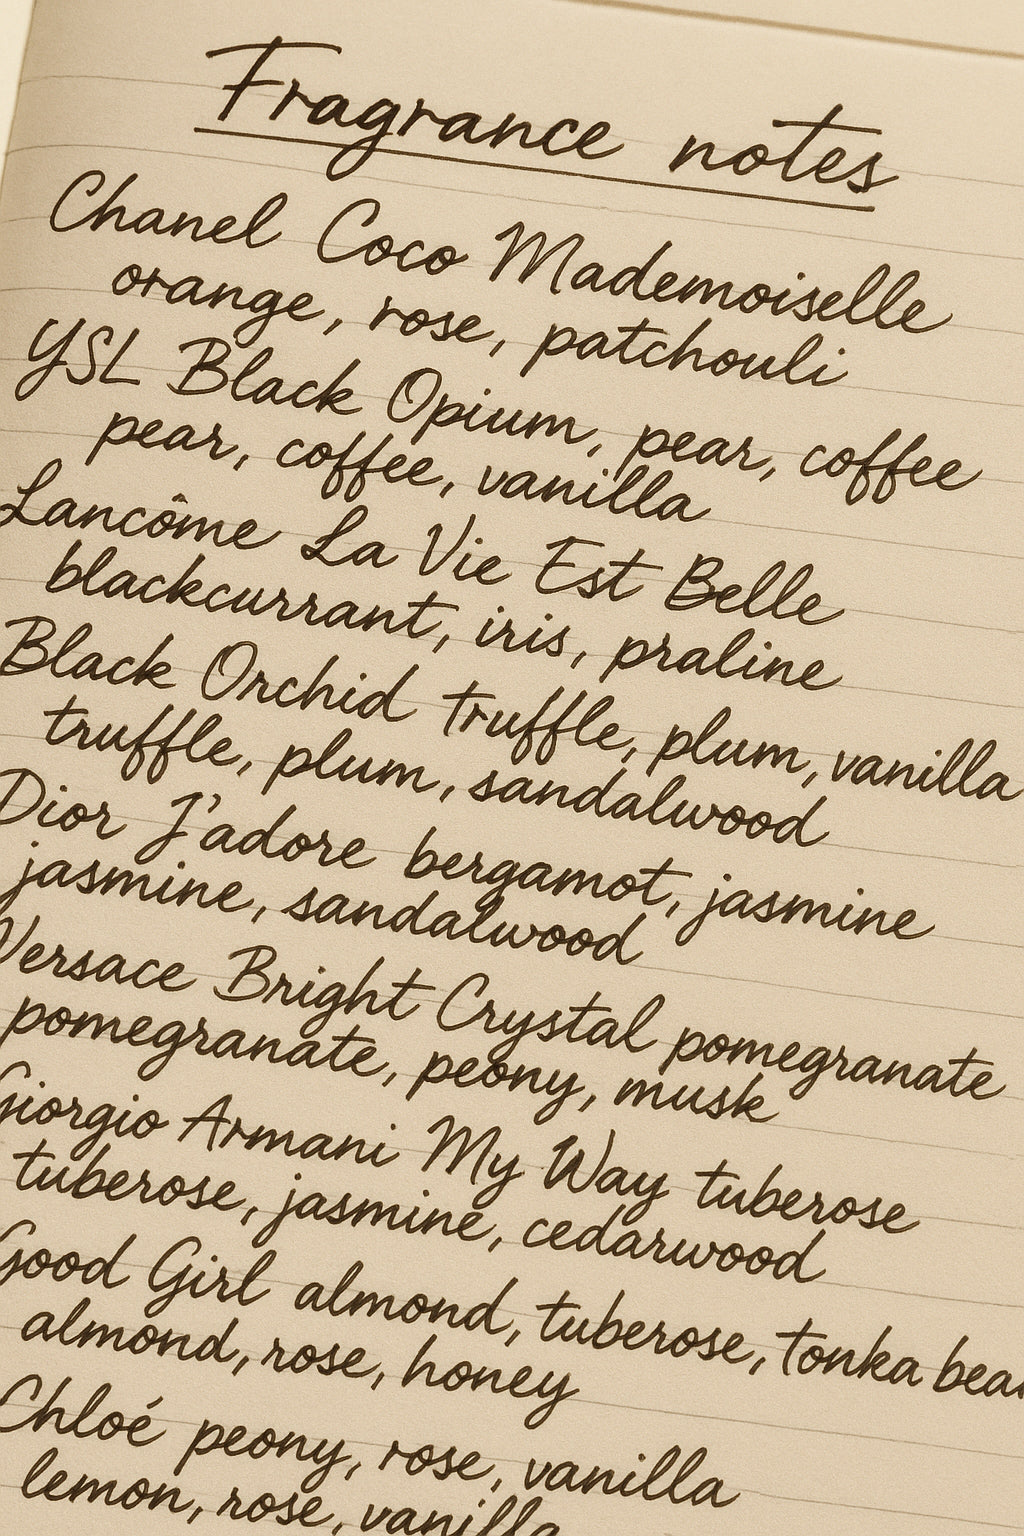 Fragrance notes
Chanel Coco Mademoiselle
orange, rose, patchouli
YSL Black Opium, pear, coffee
pear, coffee, vanilla
Lancôme La Vie Est Belle
blackcurrant, iris, praline
Black Orchid truffle, plum, vanilla
truffle, plum, sandalwood
Dior J'adore bergamot, jasmine
jasmine, sandalwood
Versace Bright Crystal pomegranate
pomegranate, peony, musk
Giorgio Armani My Way tuberose
tuberose, jasmine, cedarwood
Good Girl almond, tuberose, tonka bean
almond, rose, honey
Chloé peony, rose, vanilla
lemon, rose, vanilla